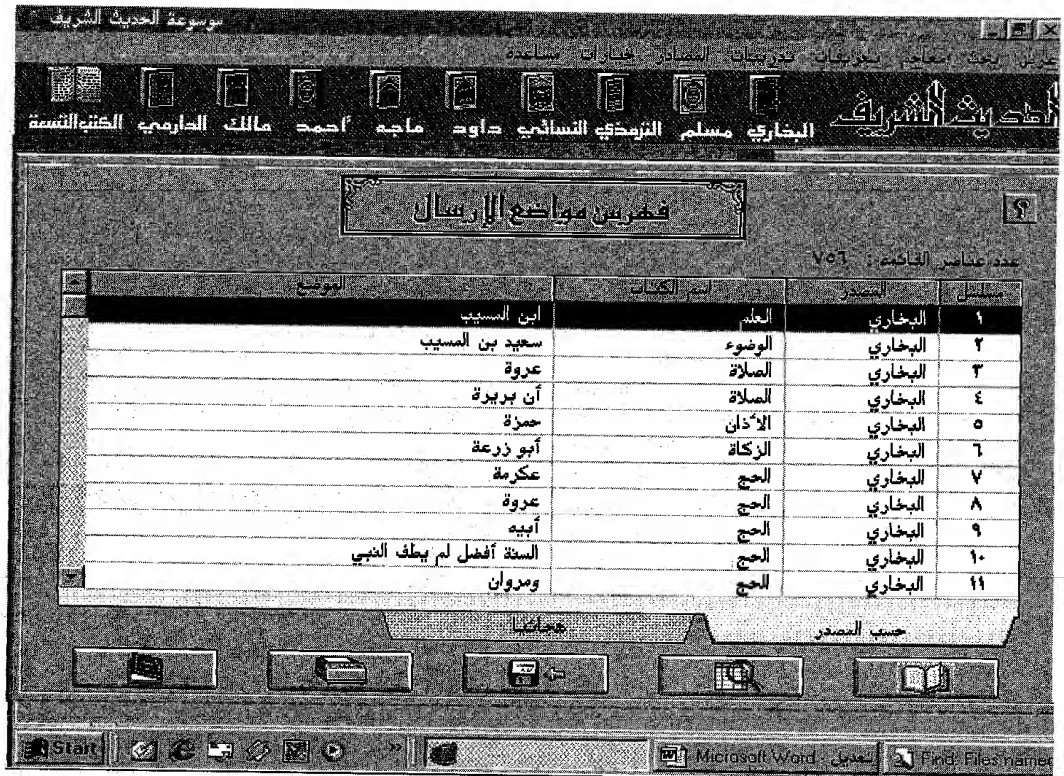 موسوعة الحديث الشريف
عرض بحث معاجم تخريجات تدريبات المصادر خيارات مساعدة
الحديث الشريف
البخاري مسلم الترمذي النسائي داود ماجه أحمد مالك الدارمي الكتب التسعة
فهرس مواضع الإرسال
عدد عناصر القائمة : ٧٥٦
مسلسل المصدر اسم الكتاب الموضع
١ البخاري العلم ابن المسيب
٢ البخاري الوضوء سعيد بن المسيب
٣ البخاري الصلاة عروة
٤ البخاري الصلاة أن بريرة
٥ البخاري الأذان حمزة
٦ البخاري الزكاة أبو زرعة
٧ البخاري الحج عكرمة
٨ البخاري الحج عروة
٩ البخاري الحج أبيه
١٠ البخاري الحج السنة أفضل لم يطف النبي
١١ البخاري الحج ومروان
حسب المصدر هجائيا
Start Microsoft Word - تعديل Find: Files named